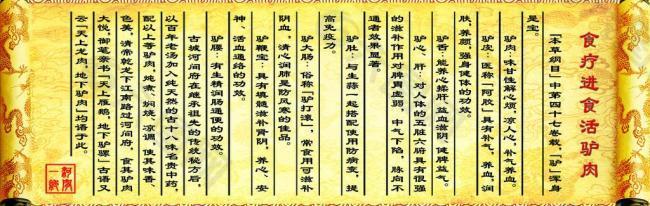 食疗进食活驴肉
《本草纲目》中第四十七卷载,“驴”浑身
是宝。
驴肉:味甘性解心烦,凉人心,补气养血。
驴皮:医称“阿胶”具有补气,养血,润
肤,养颜,强身健体的功效。
驴舌:能养心楺肝,益血滋阴,健脾益气。
驴心、肝:对人体的五脏六府具有很强
的滋补作用对脾胃虚弱,中气下陷,脉向不
通者效果显著。
驴肚:与生蒜一起搭配使用防病变,提
高免疫力。
驴大肠:俗称“驴打滚”,常食用可滋补
阴血,清心润肺是防风寒的佳品。
驴鞭宝:具有填髓滋补肾阴,养心、安
神,活血通络的功效。
驴腰:有生精润肠通便的功效。
古城河间府在继承祖先的传统秘方后,
以百年老汤加入纯天然的古十八味名贵中药,
配以上等驴肉,炖煮,焖烧,凉调,使其味香
色美,清帝乾龙下江南路过河间府,食其驴肉
大悦,御笔亲书“天上雁鹅,地下驴骡”古语又
云“天上龙肉,地下驴肉”均语于此。